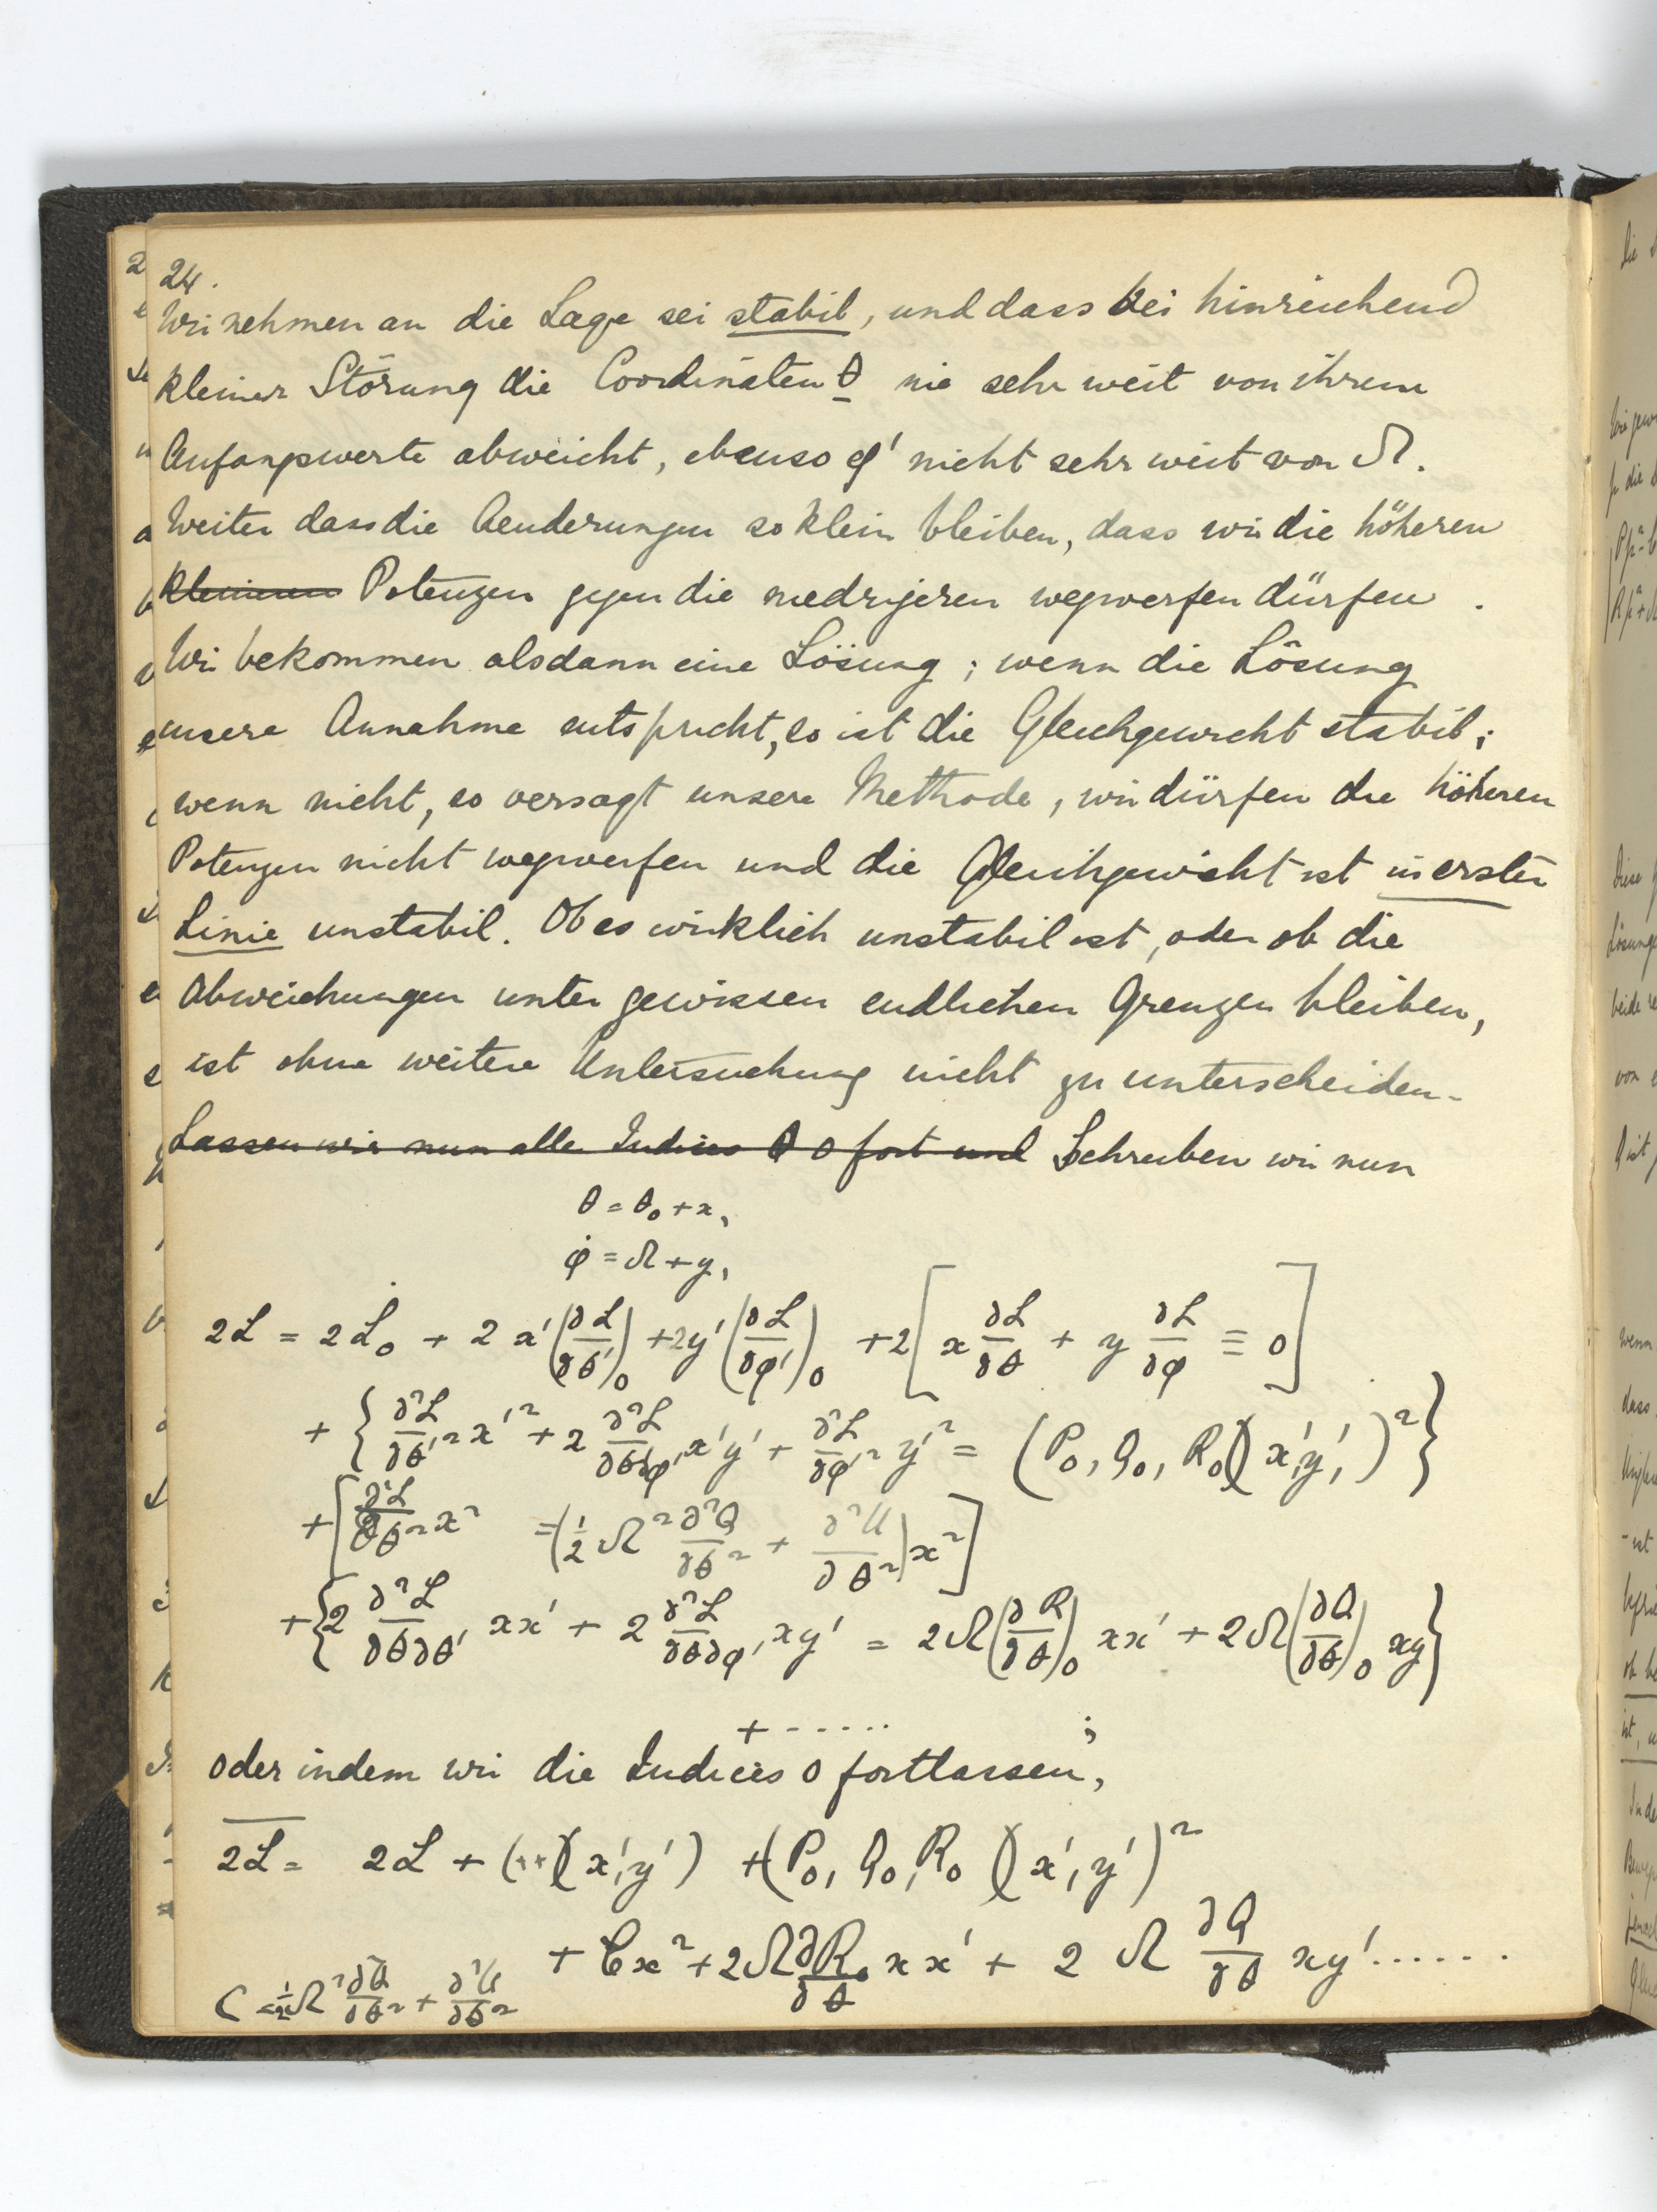 24.
Wir nehmen an die Lage sei stabil, und dass bei hinreichend
kleiner Störung die Coordinäten θ nie sehr weit von ihrem
Anfangswerte abweicht, ebenso φ' nicht sehr weit von Ω.
Weiter dass die Aenderungen so klein bleiben, dass wir die höheren
kleineren Potenzen gegen die niedrigeren wegwerfen dürfen.
Wir bekommen alsdann eine Lösung; wenn die Lösung
unsere Annahme entspricht, so ist die Gleichgewicht stabil;
wenn nicht, so versagt unsere Methode, wir dürfen die höheren
Potenzen nicht wegwerfen und die Gleichgewicht ist in erster
Linie unstabil. Ob es wirklich unstabil ist, oder ob die
Abweichungen unter gewissen endlichen Grenzen bleiben,
ist ohne weitere Untersuchung nicht zu unterscheiden.
Lassen wir nun alle Indices 0 fort und Schreiben wir nun
θ = θ₀ + x,
φ̇ = Ω + y,
2L = 2L₀ + 2x'(∂L/∂θ')₀ + 2y'(∂L/∂φ')₀ + 2[x ∂L/∂θ + y ∂L/∂φ ≡ 0]
+ {∂²L/∂θ'² x'² + 2 ∂²L/∂θ'∂φ' x'y' + ∂²L/∂φ'² y'² = (P₀, Q₀, R₀)(x', y')²}
+ [∂²L/∂θ² x² = (½Ω² ∂²Q/∂θ² + ∂²U/∂θ²)x²]
+ {2 ∂²L/∂θ∂θ' xx' + 2 ∂²L/∂θ∂φ' xy' = 2Ω(∂R/∂θ)₀ xx' + 2Ω(∂Q/∂θ)₀ xy}
+ ...... ;
oder indem wir die Indices 0 fortlassen,
2L = 2L + (··)(x', y') + (P₀, Q₀, R₀)(x', y')²
+ Cx² + 2Ω ∂R₀/∂θ xx' + 2Ω ∂Q/∂θ xy' ......
C = ½Ω² ∂²Q/∂θ² + ∂²U/∂θ²